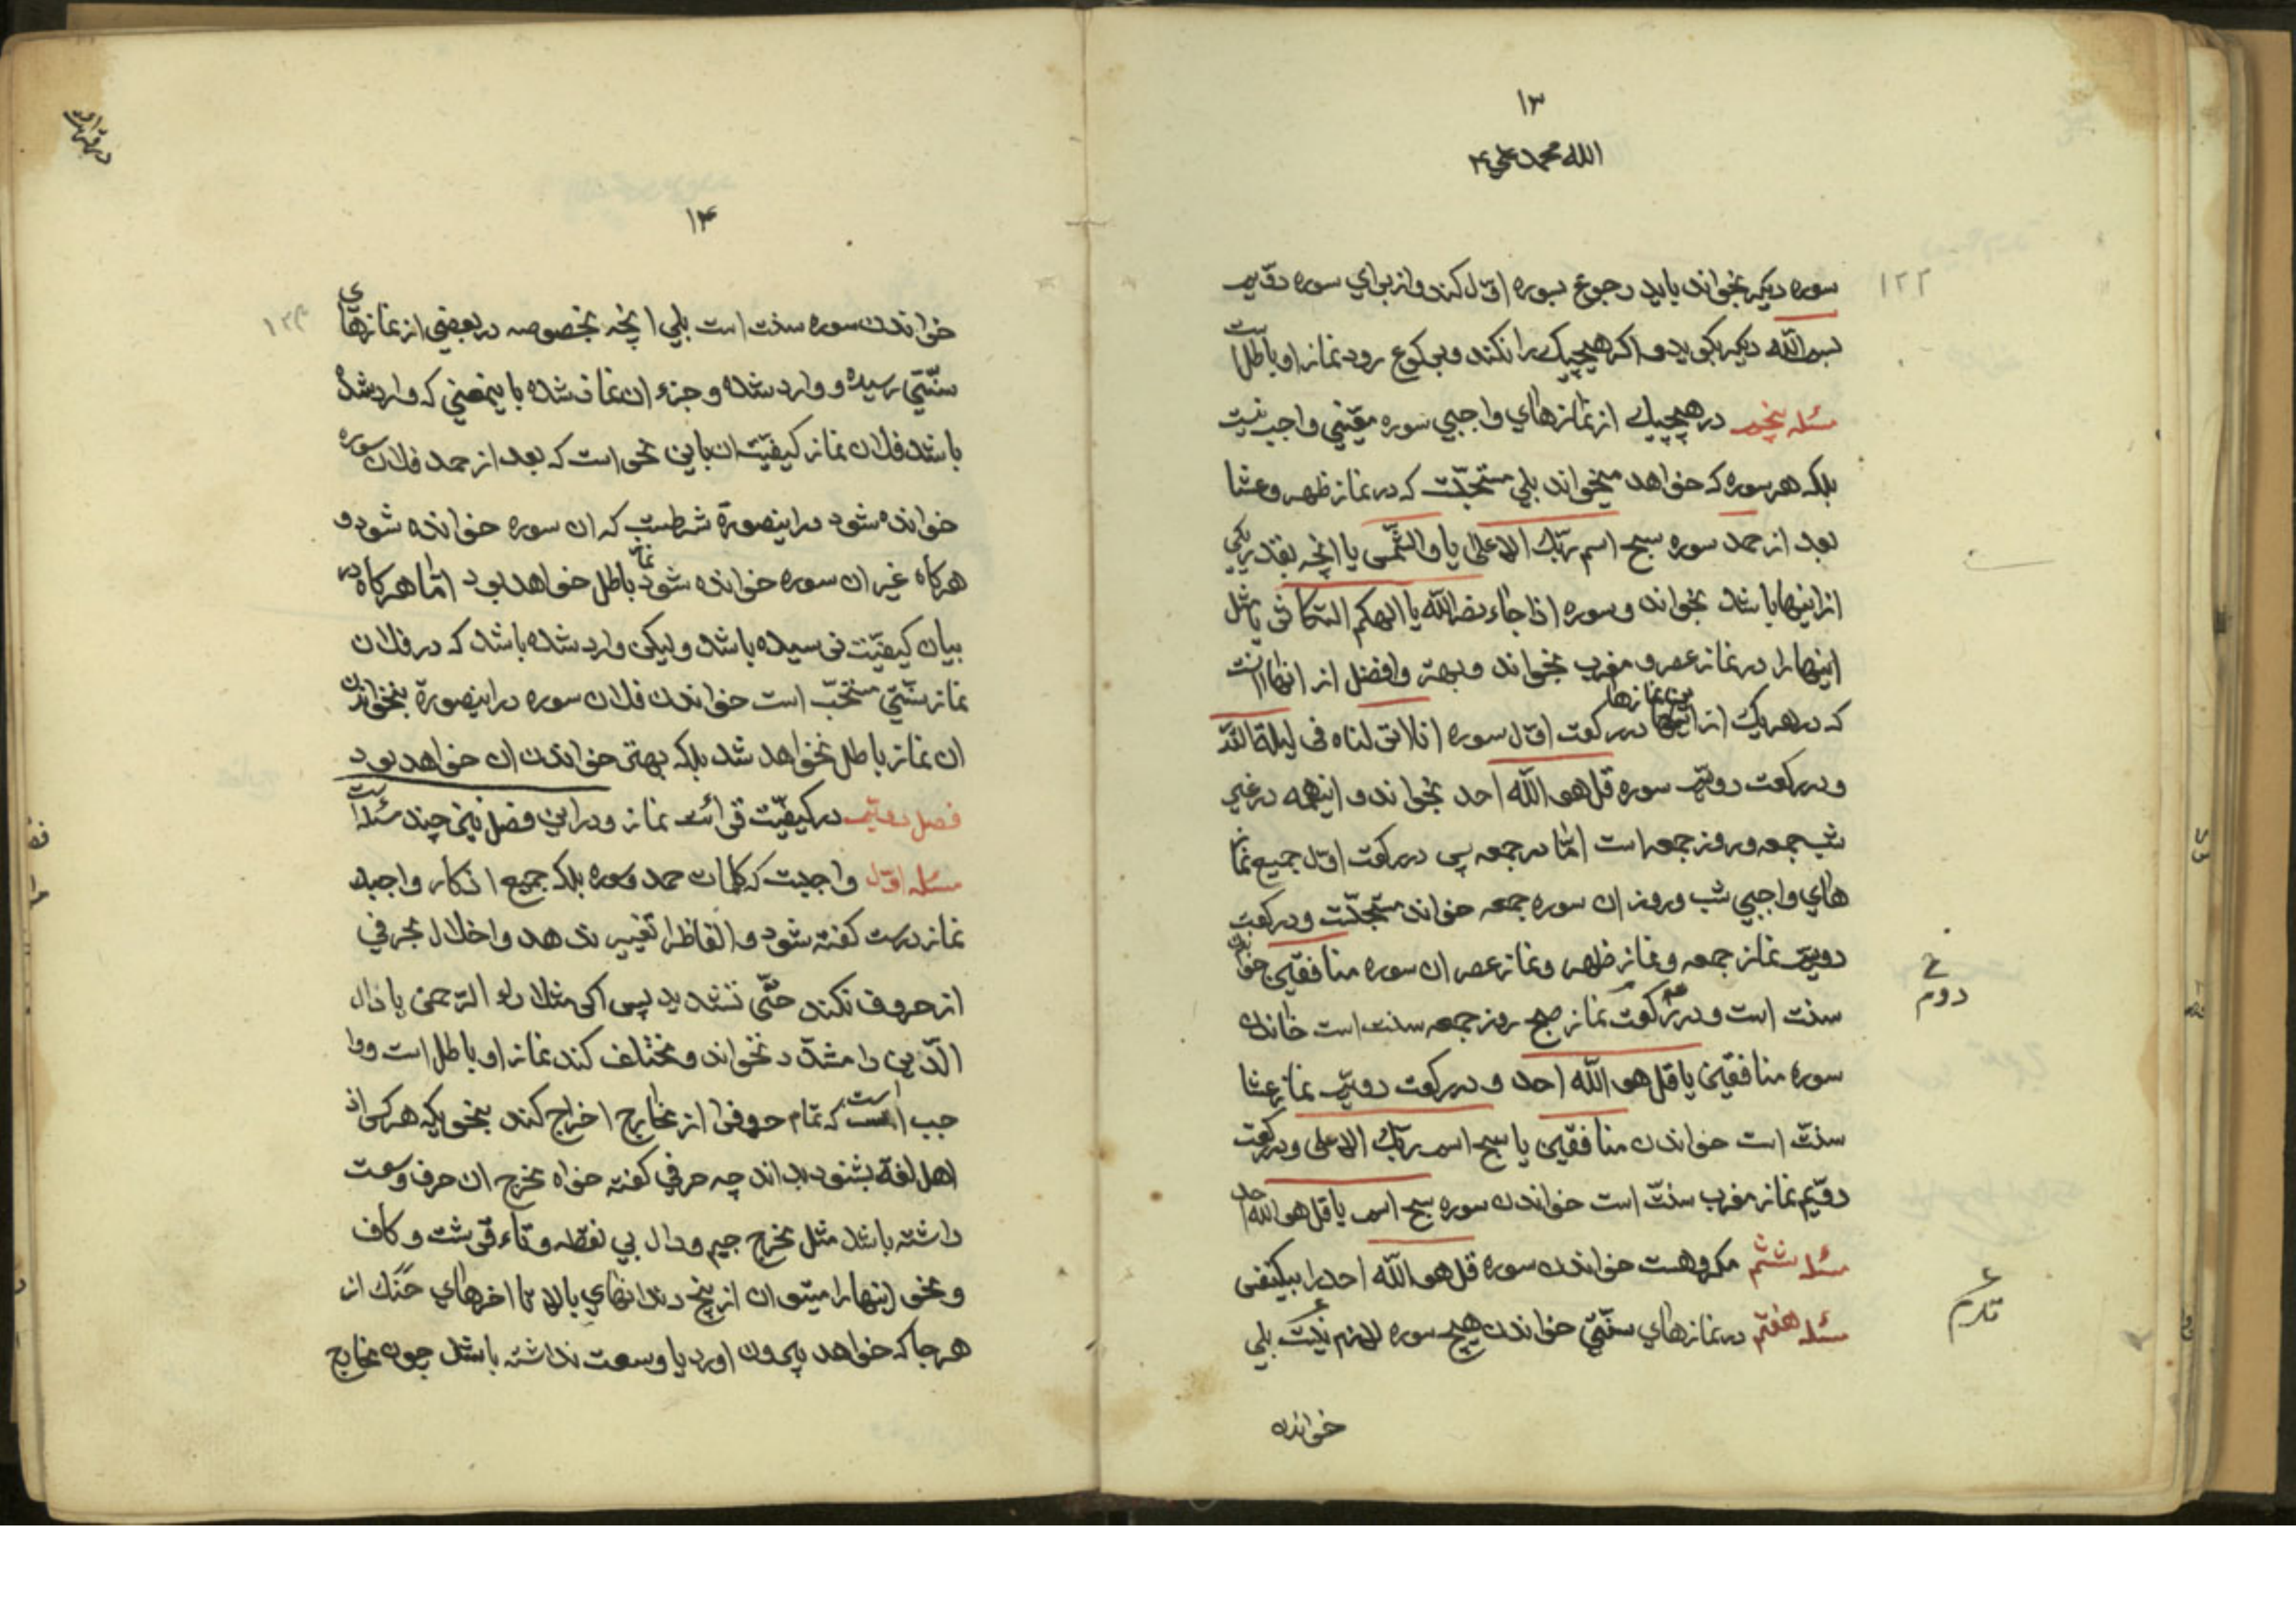 ۱۳
الله محمد علی ۴
سوره دیکر بخواند یا باید رجوع بسوره اوّل کند و از برای سوره دویم
بسم الله دیکر بکوید و اکر هیچیک را نکند و برکوع رود نماز او باطل است
مسئله پنجم در هیچیک از نمازهای واجبی سوره معیّنی واجب نیست
بلکه هر سوره که خواهد میخواند بلی مستحبّست که در نماز ظهر و عشا
بعد از حمد سوره سبح اسم ربّک الاعلی یا والشّمس یا انچه بقدر یکی
از اینها باشد بخواند و سوره اذا جاء نصر الله یا الهکم التکاثر یا مثل
اینها را در نماز عصر و مغرب بخواند و بهتر و افضل از انها انست
که در هر یک از این نمازها در رکعت اوّل سوره انا انزلناه فی لیلة القدر
و در رکعت دویّم سوره قل هو الله احد بخواند و اینهمه در غیر
شب جمعه و روز جمعه است امّا در جمعه پس در رکعت اوّل جمیع نماز
های واجبی شب و روز ان سوره جمعه خواند مستحبّست و در رکعت
دویّم نماز جمعه و نماز ظهر و نماز عصر ان سوره منافقین خواندن
سنت است و در رکعت دوم نماز صبح روز جمعه سنت است خاندن
سوره منافقین یا قل هو الله احد و در رکعت دویّم نماز عشا
سنّت است خواندن منافقین یا سبح اسم ربّک الاعلی و در رکعت
دویّم نماز مغرب سنّت است خواندن سوره سبح اسم یا قل هو الله احد
مسئله ششم مکروهست خواندن سوره قل هو الله احد را بیکنفس
مسئله هفتم در نمازهای سنّتی خواندن هیچ سوره لازم نیست بلی
خواندن
۱۲۲
دوم
۱۴
خواندن سوره سنت است بلی انچه بخصوصه در بعضی از نمازهای
سنّتی رسیده و وارد شده و جزء ان نماز شده باینمعنی که وارد شده
باشد فلان نماز کیفیّت ان باین نحو است که بعد از حمد فلان سوره
خوانده شود در اینصورة شرطست که ان سوره خوانده شود و
هرکاه غیر ان سوره خوانده شود نماز باطل خواهد بود امّا هرکاه در
بیان کیفیّت نرسیده باشد و لیکن وارد شده باشد که در فلان
نماز سنّتی مستحبّ است خواندن فلان سوره در اینصورة بنخواندن
ان نماز باطل نخواهد شد بلکه بهتر خواندن ان خواهد بود
فصل دویّم در کیفیّت قرائت نماز و در این فصل نیز چند مسئله است
مسئله اوّل واجبست که کلمات حمد و سوره بلکه جمیع اذکار واجبه
نماز درست کفته شود و الفاظ را تغییر ندهد و اخلال بحرفی
از حروف نکند حتّی تشدید پس اکر مثلا راء الرّحمن یا ذال
الّذین را مشدّد نخواند و مختلف کند نماز او باطل است و وا
جب است که تمام حروف را از مخارج اخراج کند بنحویکه هرکس از
اهل لغة بشنود بداند چه حرفی کفته خواه مخرج ان حرف وسعت
داشته باشد مثل مخرج جیم و دال بی نقطه و تاء قرشت و کاف
و نحو اینها را میتوان از بیخ دندانهای بالا تا اخرهای حنک از
هرجا که خواهد بیرون اورد یا وسعت نداشته باشد چون مخارج
۱۲۴